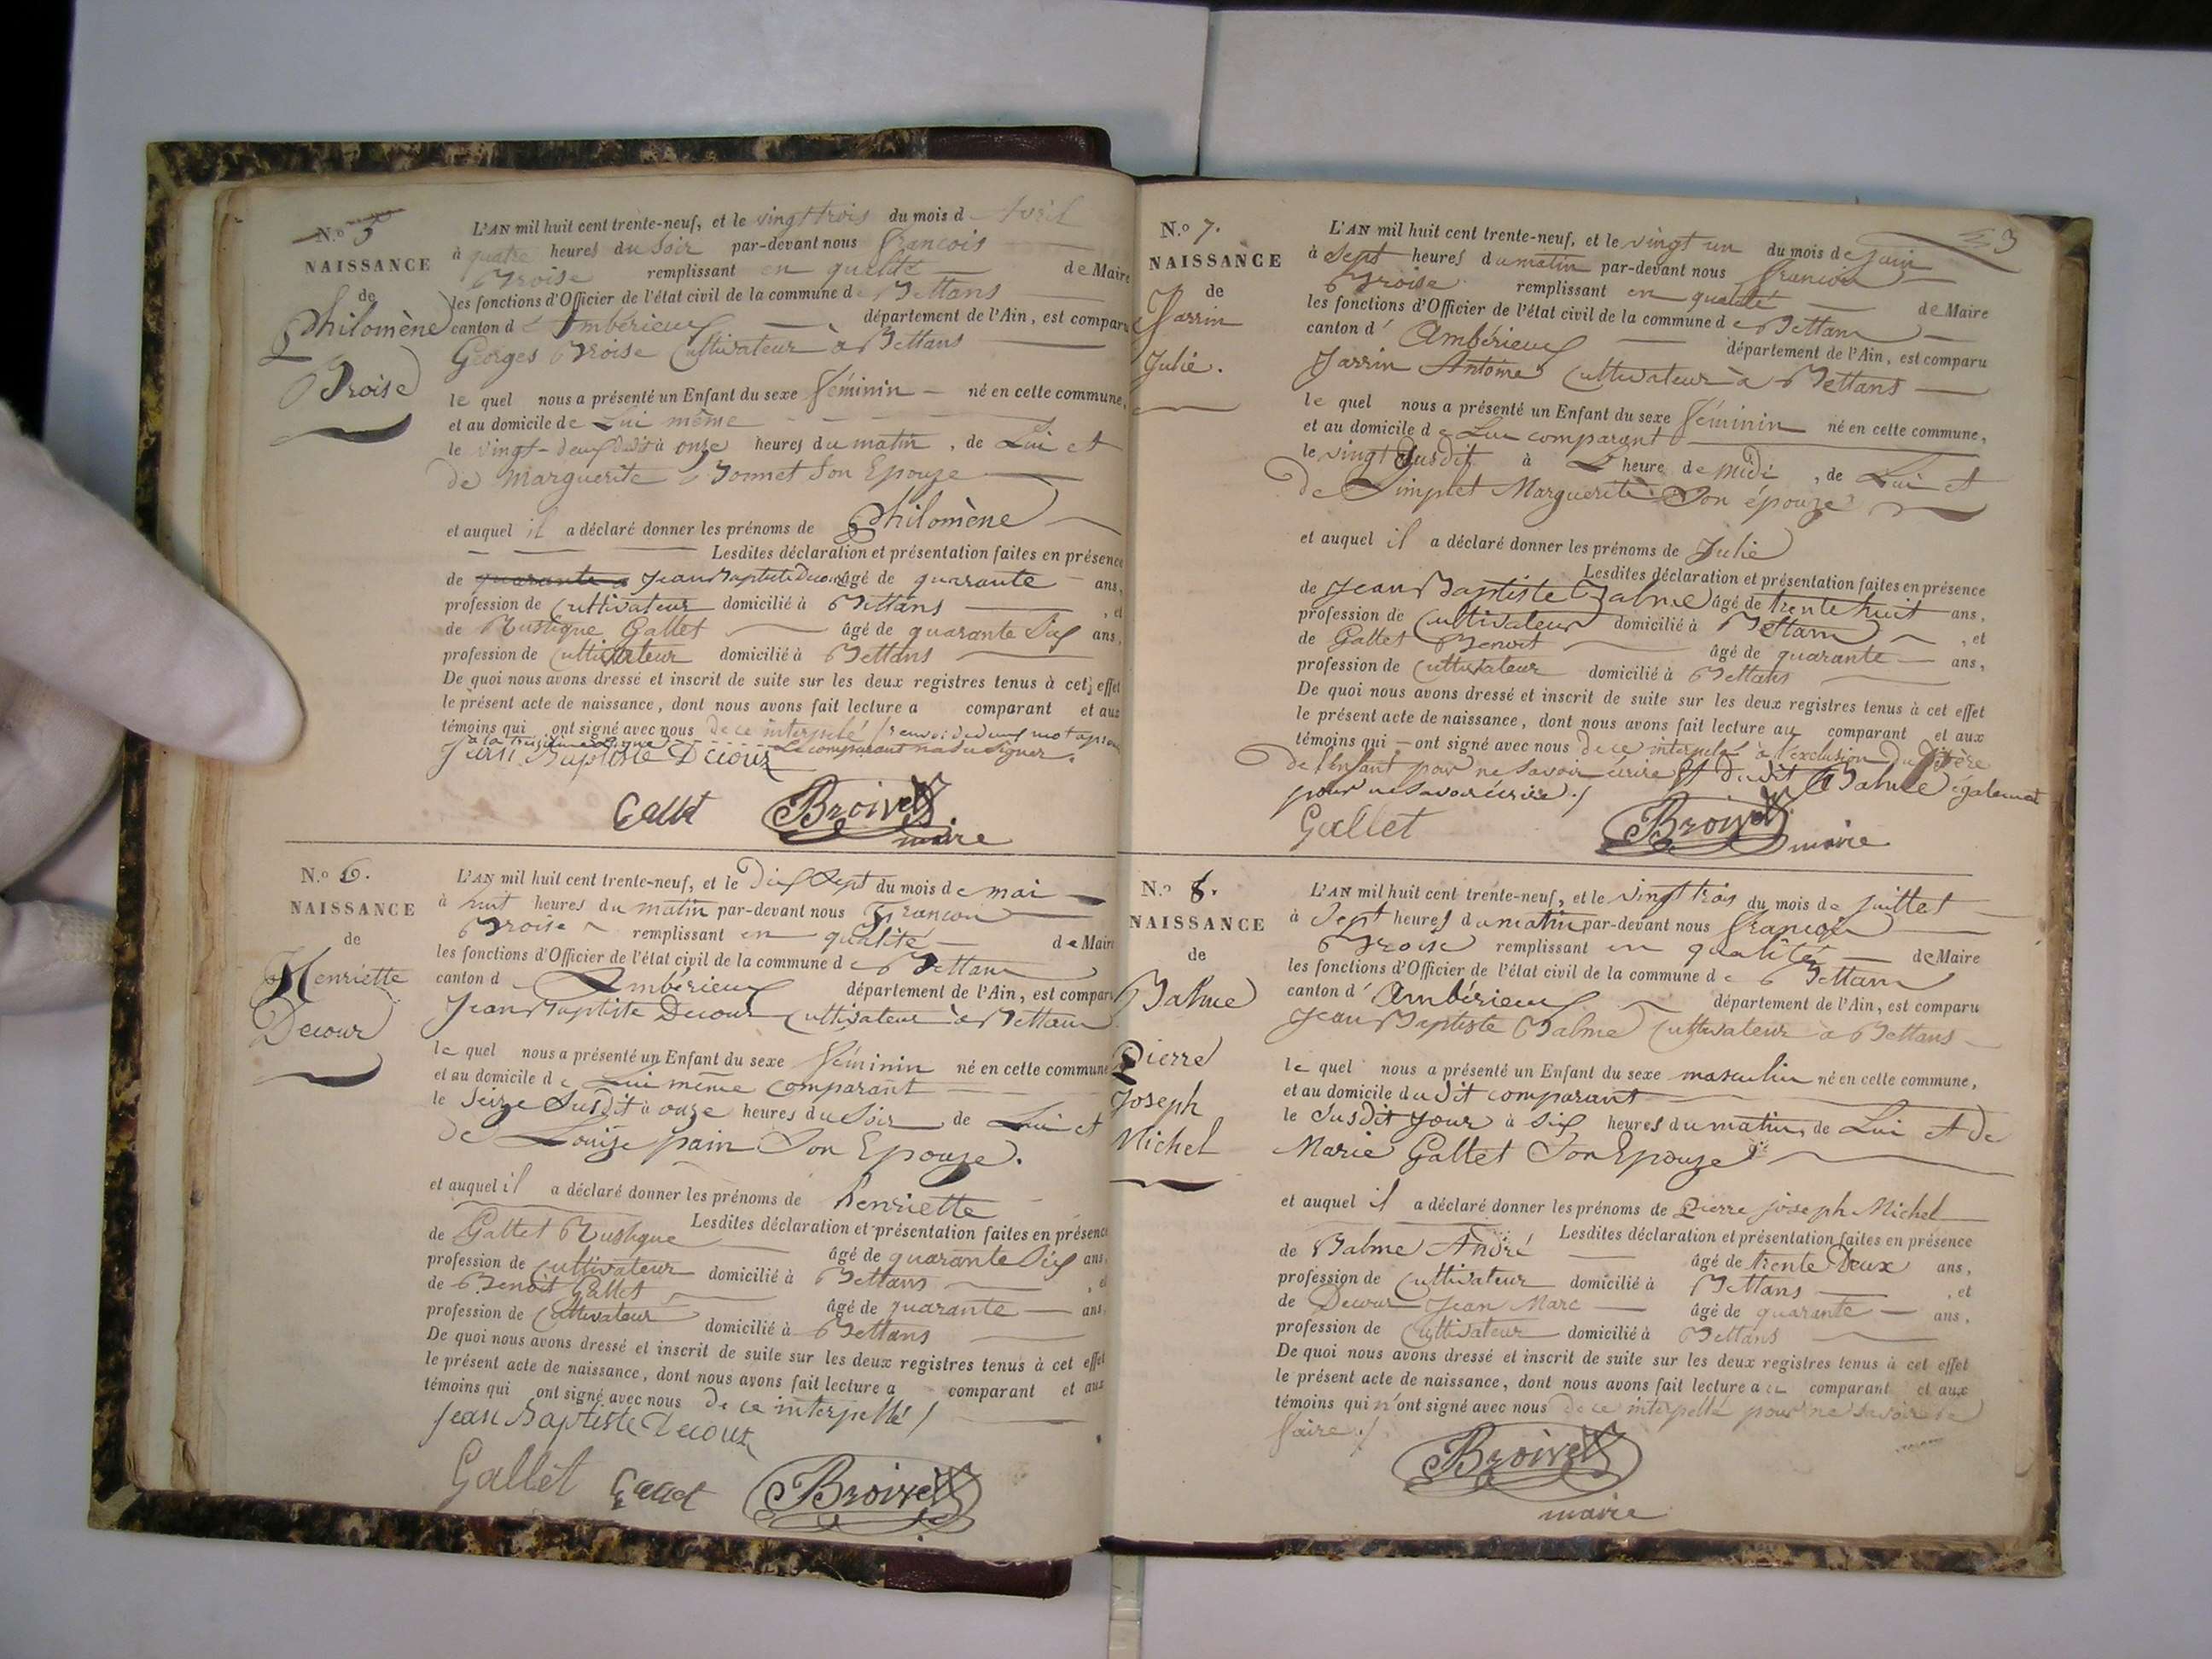 N.º 5
NAISSANCE
de
Philomène
Broise
L'AN mil huit cent trente-neuf, et le vingt trois du mois d'Avril
à quatre heures du Soir par-devant nous francois
Broise remplissant en qualité de Maire
les fonctions d'Officier de l'état civil de la commune de Bettans
canton d'Ambérieux département de l'Ain, est comparu
Georges Broise Cultivateur à Bettans
le quel nous a présenté un Enfant du sexe féminin né en cette commune,
et au domicile de Lui même
le vingt-deux dudit à onze heures du matin, de Lui et
de Marguerite Bonnet Son Epouze
et auquel il a déclaré donner les prénoms de Philomène
Lesdites déclaration et présentation faites en présence
de quarante Jean Baptiste Decour âgé de quarante ans,
profession de Cultivateur domicilié à Bettans, et
de Rustique Gallet âgé de quarante Six ans,
profession de Cultivateur domicilié à Bettans
De quoi nous avons dressé et inscrit de suite sur les deux registres tenus à cet effet
le présent acte de naissance, dont nous avons fait lecture a comparant et aux
témoins qui ont signé avec nous de ce interpelé / renvoi de deux mot apres
à la troisieme ligne Le comparant na su signer.
Jean Baptiste Decour
Gallet Broise
maire
N.º 6.
NAISSANCE
de
Henriette
Decour
L'AN mil huit cent trente-neuf, et le Dix Sept du mois de mai
à huit heures du matin par-devant nous Francois
Broise remplissant en qualité de Maire
les fonctions d'Officier de l'état civil de la commune de Bettans
canton d Ambérieux département de l'Ain, est comparu
Jean Baptiste Decour Cultivateur à Bettans
le quel nous a présenté un Enfant du sexe féminin né en cette commune
et au domicile de Lui même comparant
le Seize Susdit à onze heures du Soir de Lui et
de Louize pain Son Epouze.
et auquel il a déclaré donner les prénoms de henriette
Lesdites déclaration et présentation faites en présence
de Gallet Rustique âgé de quarante Six ans,
profession de Cultivateur domicilié à Bettans, et
de Benoit Gallet âgé de quarante ans,
profession de Cultivateur domicilié à Bettans
De quoi nous avons dressé et inscrit de suite sur les deux registres tenus à cet effet
le présent acte de naissance, dont nous avons fait lecture a comparant et aux
témoins qui ont signé avec nous de ce interpellé /
Jean Baptiste Decour
Gallet Gallet Broise
3
N.º 7.
NAISSANCE
de
Jarrin
Julie.
L'AN mil huit cent trente-neuf, et le vingt un du mois de juin
à Sept heures du matin par-devant nous francois
Broise remplissant en qualité de Maire
les fonctions d'Officier de l'état civil de la commune de Bettans
canton d'Ambérieux département de l'Ain, est comparu
Jarrin Antoine Cultivateur à Bettans
le quel nous a présenté un Enfant du sexe féminin né en cette commune,
et au domicile de Lui comparant
le vingt Susdit à L' heure de midi, de Lui et
de Simplet Marguerite Son épouze
et auquel il a déclaré donner les prénoms de Julie
Lesdites déclaration et présentation faites en présence
de Jean Baptiste Balme âgé de trente huit ans,
profession de Cultivateur domicilié à Bettans, et
de Gallet Benoit âgé de quarante ans,
profession de Cultivateur domicilié à Bettans
De quoi nous avons dressé et inscrit de suite sur les deux registres tenus à cet effet
le présent acte de naissance, dont nous avons fait lecture au comparant et aux
témoins qui ont signé avec nous de ce interpelé à l'exclusion du père
de l'enfant pour ne Savoir écrire et du dit Balme également
pour ne Savoir écrire ./
Gallet Broise
maire
N.º 8.
NAISSANCE
de
Balme
Pierre
Joseph
Michel
L'AN mil huit cent trente-neuf, et le vingt trois du mois de juillet
à Sept heures du matin par-devant nous francois
Broise remplissant en qualité de Maire
les fonctions d'Officier de l'état civil de la commune de Bettans
canton d'Ambérieux département de l'Ain, est comparu
Jean Baptiste Balme Cultivateur à Bettans
le quel nous a présenté un Enfant du sexe masculin né en cette commune,
et au domicile dudit comparant
le Susdit jour à Six heures du matin, de Lui et de
Marie Gallet Son Epouze
et auquel il a déclaré donner les prénoms de Pierre joseph Michel
Lesdites déclaration et présentation faites en présence
de Balme André âgé de trente Deux ans,
profession de Cultivateur domicilié à Bettans, et
de Decour Jean Marc âgé de quarante ans,
profession de Cultivateur domicilié à Bettans
De quoi nous avons dressé et inscrit de suite sur les deux registres tenus à cet effet
le présent acte de naissance, dont nous avons fait lecture au comparant et aux
témoins qui n'ont signé avec nous de ce interpellé pour ne Savoir le
faire ./
Broise
maire